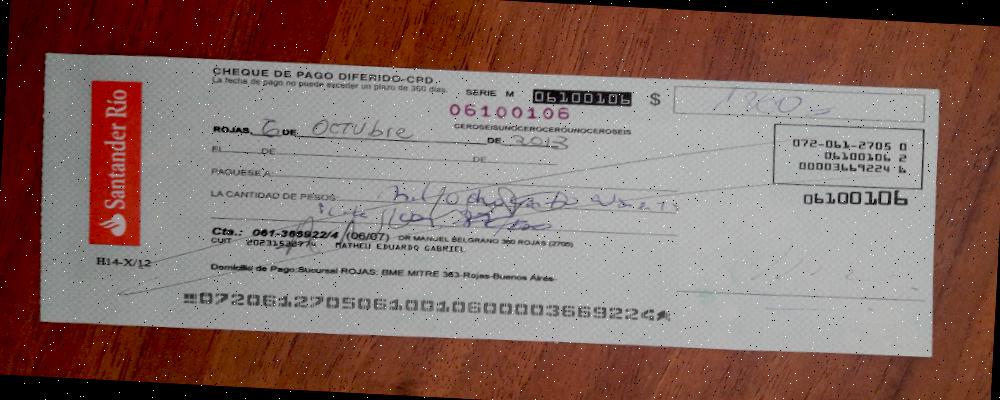 CHEQUE DE PAGO DIFERIDO-CRD
La fecha de pago no puede exceder un plazo de 360 días.
SERIE M 06100106 $
06100106
CEROSEISUNOCEROCEROUNOCEROSEIS
ROJAS, 6 DE Octubre DE 2013
EL DE DE
PAGUESE A
LA CANTIDAD DE PESOS
072-061-2705 0
06100106 2
00003669224 6
06100106
Cta.: 061-366922/4 (06/07) DR MANUEL BELGRANO 360 ROJAS (2705)
CUIT MATHEU EDUARDO GABRIEL
Domicilio de Pago:Sucursal ROJAS: BME MITRE 363-Rojas-Buenos Aires-
Santander Río
H14-X/12
07206127050610010600003669224